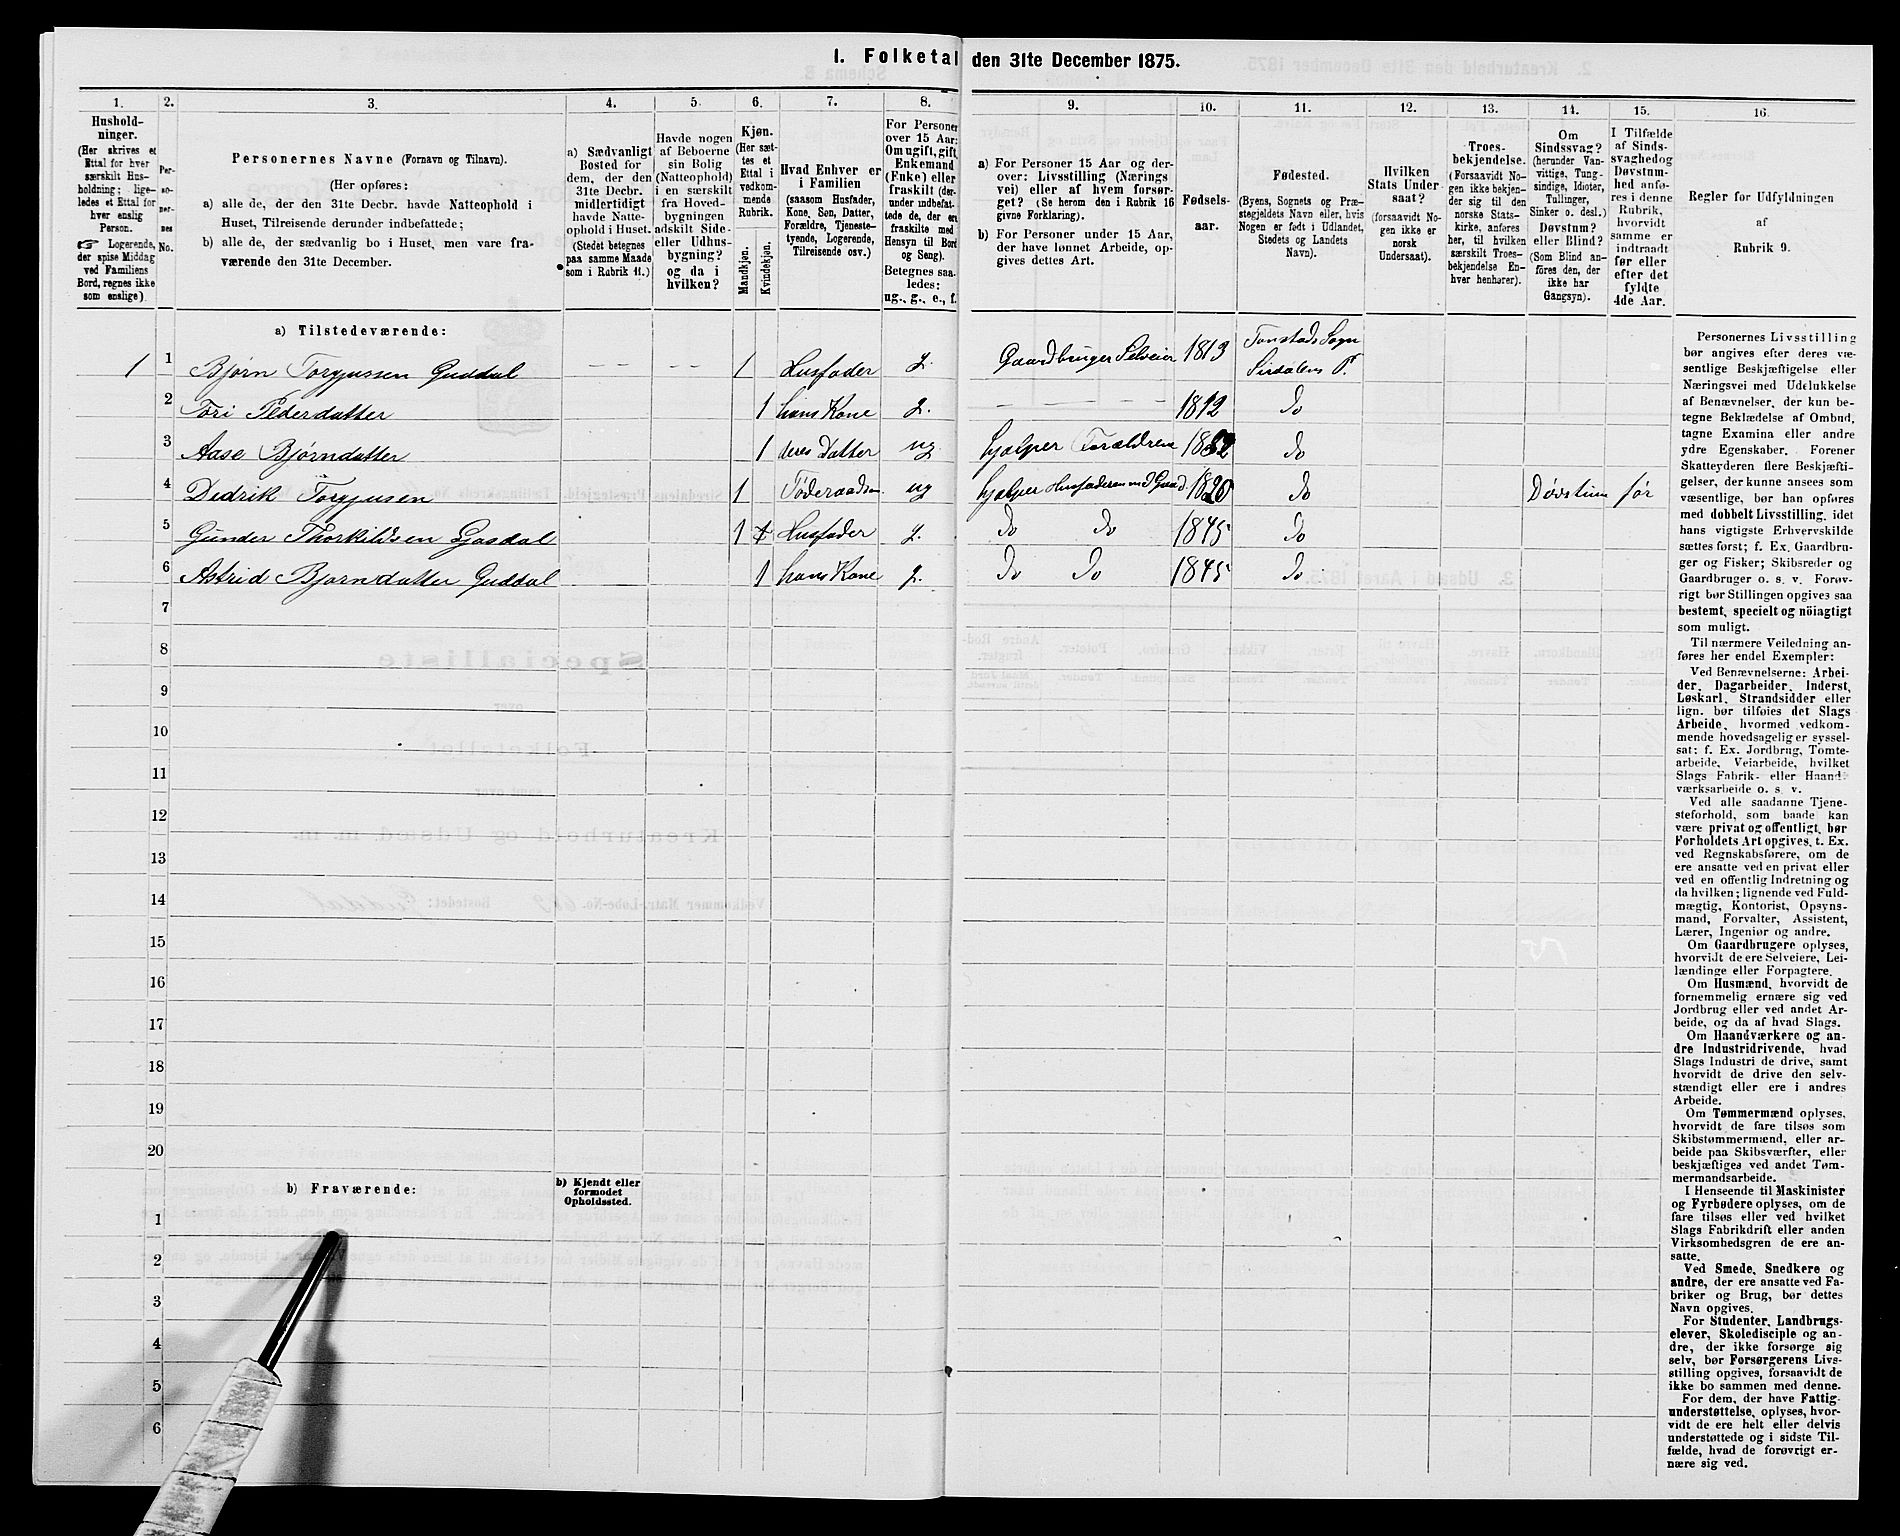 1. Folketal den 31te December 1875.
1. 2. 3. 4. 5. 6. 7. 8. 9. 10. 11. 12. 13. 14. 15. 16.
Hushold-
ninger.
(Her skrives et
Ettal for hver
særskilt Hus-
holdning; lige-
ledes et Ettal for
hver enslig
Person.
☞ Logerende,
der spise Middag
ved Familiens
Bord, regnes ikke
som enslige)
Per-
so-
ner-
nes
No.
Personernes Navne (Fornavn og Tilnavn).
(Her opføres:
a) alle de, der den 31te Decbr. havde Natteophold i
Huset, Tilreisende derunder indbefattede;
b) alle de, der sædvanlig bo i Huset, men vare fra-
værende den 31te December.
a) Sædvanligt
Bosted for
dem, der den
31te Decbr.
midlertidigt
havde Natte-
ophold i Huset.
(Stedet betegnes
paa samme Maade
som i Rubrik 11.)
Havde nogen
af Beboerne
sin Bolig
(Natteophold)
i en særskilt
fra Hoved-
bygningen
adskilt Side-
eller Udhus-
bygning?
og da i
hvilken?
Kjøn.
(Her sæt-
tes et
Ettal i
vedkom-
mende
Rubrik.
Mandkjøn.
Kvindekjøn.
Hvad Enhver er
i Familien
(saasom Husfader,
Kone, Søn, Datter,
Forældre, Tjeneste-
tyende, Logerende,
Tilreisende osv.)
For Personer
over 15 Aar:
Om ugift, gift,
Enkemand
(Enke) eller
fraskilt (der-
under indbefat-
tede de, der ere
fraskilte med
Hensyn til Bord
og Seng).
Betegnes saa-
ledes:
ug., g., e., f.
a) For Personer 15 Aar og der-
over: Livsstilling (Nærings-
vei) eller af hvem forsør-
get? (Se herom den i Rubrik 16
givne Forklaring).
b) For Personer under 15 Aar,
der have lønnet Arbeide, op-
gives dettes Art.
Fødsels-
aar.
Fødested.
(Byens, Sognets og Præ-
stegjeldets Navn eller, hvis
Nogen er født i Udlandet,
Stedets og Landets
Navn).
Hvilken
Stats Under-
saat?
(forsaavidt No-
gen ikke er
norsk
Undersaat).
Troes-
bekjendelse.
(Forsaavidt No-
gen ikke bekjen-
der sig til den
norske Stats-
kirke, anføres
her, til hvilken
særskilt Troes-
bekjendelse En-
hver henhører).
Om
Sindssvag?
(herunder Van-
vittige, Tung-
sindige, Idioter,
Tullinger,
Sinker o. desl.)
Døvstum?
eller Blind?
(Som Blind an-
føres den, der
ikke har
Gangsyn).
I Tilfælde
af Sinds-
svaghedog
Døvstum-
hed anfø-
res i denne
Rubrik,
hvorvidt
samme er
indtraadt
før eller
efter det
fyldte
4de Aar.
Regler for Udfyldningen
af
Rubrik 9.
a) Tilstedeværende:
1 1 Bjørn Torgjussen Guddal — — 1 Husfader g. Gaardbruger Selveier 1813 Tonstads Sogn
Sirdalens P.
2 Tori Pederdatter 1 hans Kone g. — — — 1812 Do
3 Aase Bjørndatter 1 deres Datter ug hjælper Forældrene 1852 Do
4 Didrik Torgjusen 1 Føderaadsm ug hjælper Husfaderen med Gaard. 1820 Do Døvstum før
5 Gunder Thorkildsen Josdal 1 Husfader g. Do Do 1845 Do
6 Astrid Bjørndatter Guddal 1 hans Kone g. Do Do 1845 Do
7
8
9
10
11
12
13
14
15
16
17
18
19
20
b) Fraværende:
b) Kjendt eller
formodet
Opholdssted.
1
2
3
4
5
6
Personernes Livsstilling
bør angives efter deres væ-
sentlige Beskjæftigelse eller
Næringsvei med Udelukkelse
af Benævnelser, der kun be-
tegne Beklædelse af Ombud,
tagne Examina eller andre
ydre Egenskaber. Forener
Skatteyderen flere Beskjæfti-
gelser, der kunne ansees som
væsentlige, bør han opføres
med dobbelt Livsstilling, idet
hans vigtigste Erhvervskilde
sættes først; f. Ex. Gaardbru-
ger og Fisker; Skibsreder og
Gaardbruger o. s. v. Forøv-
rigt bør Stillingen opgives saa
bestemt, specielt og nöiagtigt
som muligt.
Til nærmere Veiledning an-
føres her endel Exempler:
Ved Benævnelserne: Arbei-
der, Dagarbeider, Inderst,
Løskarl, Strandsidder eller
lign. bør tilføies det Slags
Arbeide, hvormed vedkom-
mende hovedsagelig er syssel-
sat; f. Ex. Jordbrug, Tomte-
arbeide, Veiarbeide, hvilket
Slags Fabrik- eller Haand-
værksarbeide o. s. v.
Ved alle saadanne Tjene-
steforhold, som baade kan
være privat og offentligt, bør
Forholdets Art opgives, t. Ex.
ved Regnskabsførere, om de
ere ansatte ved en privat eller
ved en offentlig Indretning og
da hvilken; lignende ved Fuld-
mægtig, Kontorist, Opsyns-
mand, Forvalter, Assistent,
Lærer, Ingeniør og andre.
Om Gaardbrugere oplyses,
hvorvidt de ere Selveiere, Lei-
lændinge eller Forpagtere.
Om Husmænd, hvorvidt de
fornemmelig ernære sig ved
Jordbrug eller ved andet Ar-
beide, og da af hvad Slags.
Om Haandværkere og an-
dre Industridrivende, hvad
Slags Industri de drive, samt
hvorvidt de drive den selv-
stændigt eller ere i andres
Arbeide.
Om Tømmermænd oplyses,
hvorvidt de fare tilsøs som
Skibstømmermænd, eller ar-
beide paa Skibsværfter, eller
beskjæftiges ved andet Tøm-
mermandsarbeide.
I Henseende til Maskinister
og Fyrbødere oplyses, om de
fare tilsøs eller ved hvilket
Slags Fabrikdrift eller anden
Virksomhedsgren de ere an-
satte.
Ved Smede, Snedkere og
andre, der ere ansatte ved Fa-
briker og Brug, bør dettes
Navn opgives.
For Studenter, Landbrugs-
elever, Skoledisciple og an-
dre, der ikke forsørge sig
selv, bør Forsørgerens Livs-
stilling opgives, forsaavidt de
ikke bo sammen med denne.
For dem, der have Fattig-
understøttelse, oplyses, hvor-
vidt de ere helt eller delvis
understøttede og i sidste Til-
fælde, hvad de forøvrigt er-
nære sig ved.